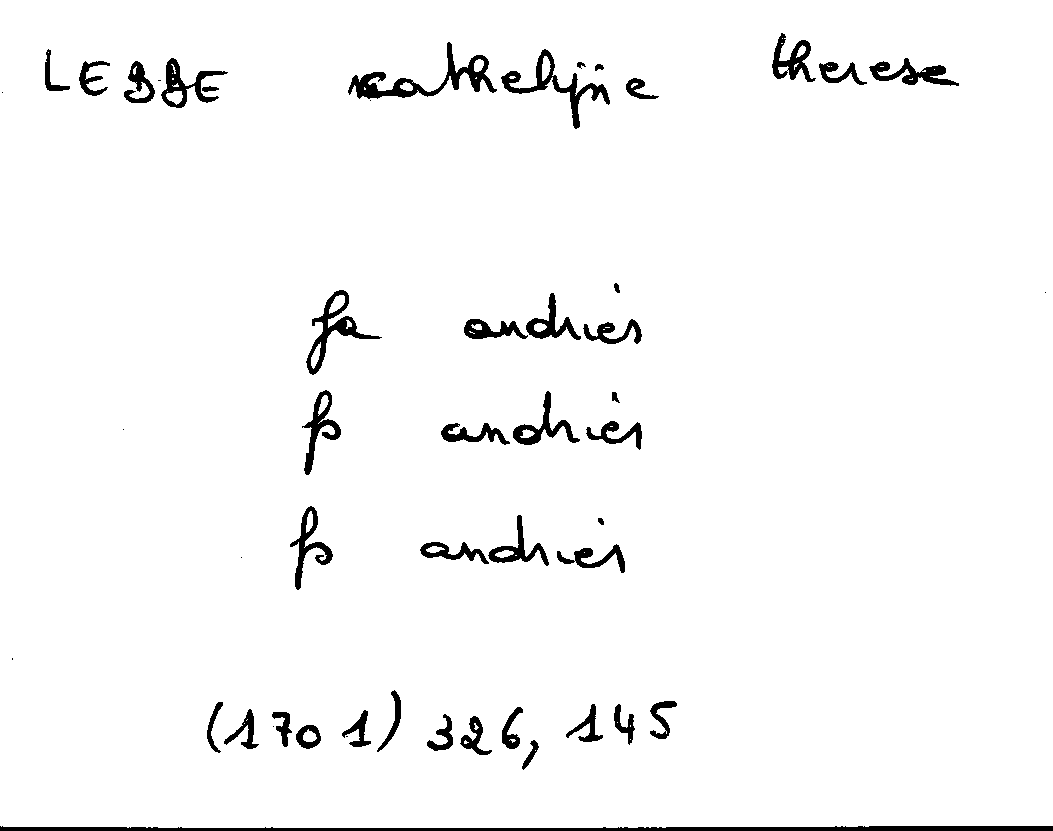 LEBBE cathelijne therese
fa andries
fs andries
fs andries
(1701) 326, 145